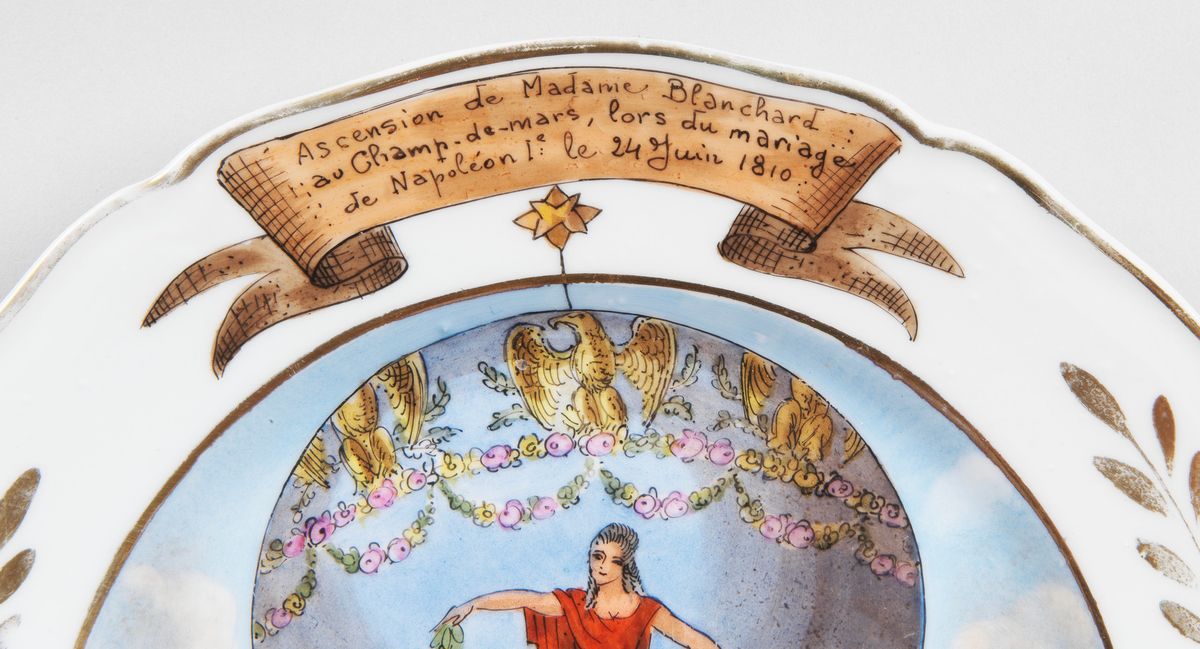 Ascension de Madame Blanchard :
au Champ-de-mars, lors du mariage
de Napoléon Ie: le 24 Juin 1810